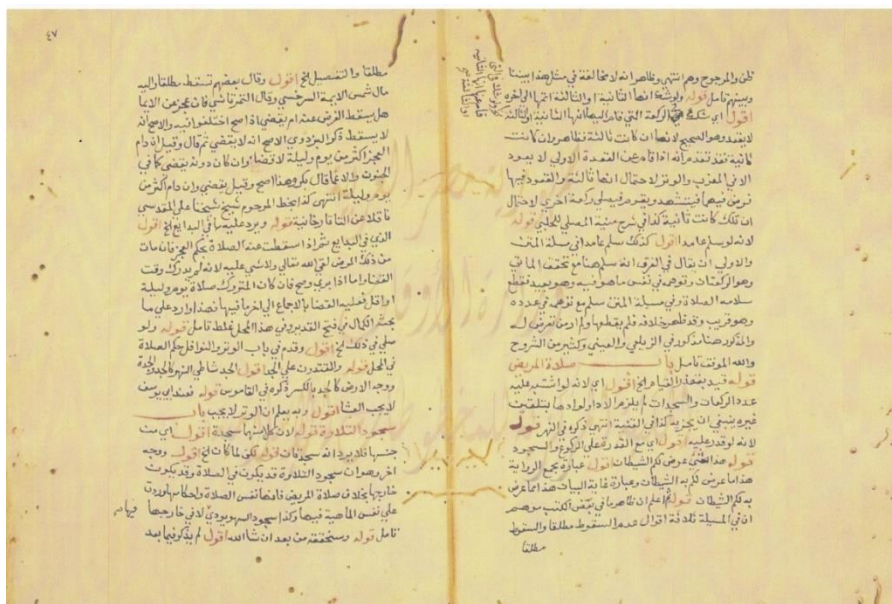 ظن والمرجوح وهم انتهى وظاهره انه لا مخالفة في مثل هذا بيننا
وبينهم تامل قوله ولو شك انها الثانية او الثالثة اتمها الى اخره
اقول اي شك في الركعة التي قام اليها انها الثانية او الثالثة
لا يقعد وهو الصحيح لانها ان كانت ثالثة فظاهر وان كانت
ثانية فقد تقدم انه اذا قام عن القعدة الاولى لا يعود
الا في المغرب والوتر لاحتمال انها ثالثة والقعود فيها
فرض فيها فيتشهد ويقوم فيصلي ركعة اخرى لاحتمال
ان تلك كانت ثانية كذا في شرح منية المصلي للحلبي قوله
لانه لو سلم عامدا اقول كذلك سلم عامدا في مسئلة
والاولى ان يقال في الفرق انه سلم هنا مع تحقق
وهو الركعتان وتوهمه في نفس ما هو فيه وهو بعيد فقطع
سلامه الصلاة وفي مسيلة سلم مع توهمه في عدده
وهو قريب وقد ظهر خلافه فلم يقطعها ولم ار من تعرض له
والمذكور هنا مذكور في الزيلعي والعيني وكثير من الشروح
والله الموفق تامل باب صلاة المريض
قوله قيد بتعذر القيام الخ اقول اي لانه لو اشتبه عليه
عدد الركعات والسجدات لم يلزمه الادا ولو اداها بتلقين
غيره ينبغي ان يجزيه كذا في القنية انتهى ذكره في النهر قوله
لانه لو قدر عليه اقول اي مع القدرة على الركوع والسجود
قوله هذا عرض لكم الشيطان اقول عبارة مجمع الرواية
هذا ما عرض لكم به الشيطان وعبارة غاية البيان هذا ما عرض
به لكم الشيطان قوله اعلم ان ظاهر ما في بعض الكتب موهم
ان في المسيلة ثلاثة اقوال عدم السقوط مطلقا والسقوط
مطلقا
٤٧
مطلقا والتفصيل الخ اقول وقال بعضهم تسقط مطلقا واليه
مال شمس الايمة السرخسي وقال التمرتاشي فان عجز عن الايما
هل يسقط الفرض عنه ام يقضي اذا صح اختلفوا فيه والاصح انه
لا يسقط ذكر البزدوي الاصح انه لا يقضي ثم قال وقيل ان دام
العجز اكثر من يوم وليلة لا قضا وان كان دونه يقضي كما في
الجنون والاغما قال بكر وهذا اصح وقيل يقضي وان دام اكثر من
يوم وليلة انتهى كذا بخط المرحوم شيخ شيخنا على المقدسي
ناقلا عن التاتارخانية قوله ويرد عليه ما في البدايع الخ اقول
الذي في البدايع ثم اذا سقطت عنه الصلاة بحكم العجز فان مات
من ذلك المرض لقي الله تعالى ولا شي عليه لانه لم يدرك وقت
القضا واما اذا بري وصح فان كان المتروك صلاة يوم وليلة
او اقل فعليه القضا بالاجماع الى اخر ما فيها فصدا وارد على ما
بحثه الكمال في فتح القدير وفي هذا المحل غلط تامل قوله ولو
صلى في فلك الخ اقول وقدم في باب الوتر والنوافل حكم الصلاة
في المحمل قوله والمقتدرون على الجد اقول الجد شاطي النهر كالجدة
ووجه الارض كالجد بالكسر ذكره في القاموس قوله فعند ابي يوسف
لا يجب العشا اقول وبه يعلم ان الوتر لا يجب باب
سجود التلاوة قوله لان كلا منها سجدة اقول اي من
جنسها فلا يرد انه سجدتان قوله لكن لما كان الخ اقول ووجه
اخر وهو ان سجود التلاوة قد يكون في الصلاة وقد يكون
خارجها بخلاف صلاة المريض فانها نفس الصلاة واحكامها وردت
على نفس الماهية فيها وكذا سجود السهو يودى لا في خارجها
تامل قوله وسنحققه من بعد ان شا الله اقول لم يذكر فيما بعد